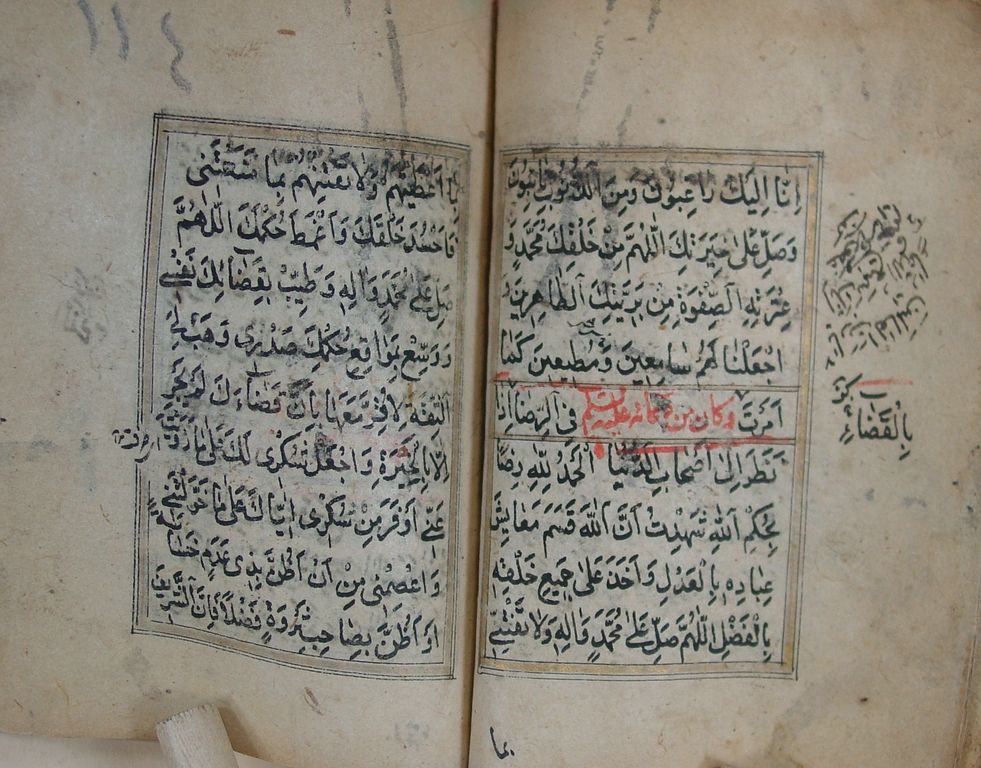 اِنَّا اِلَيْكَ رَاغِبُونَ وَمِنَ الذُّنُوبِ تَائِبُونَ
وَصَلِّ عَلٰى خِيَرَتِكَ اللّٰهُمَّ مِنْ خَلْقِكَ مُحَمَّدٍ وَ
عِتْرَتِهِ الصِّفْوَةِ مِنْ بَرِيَّتِكَ الطَّاهِرِينَ وَ
اجْعَلْنَا لَهُمْ سَامِعِينَ وَمُطِيعِينَ كَمَا
اَمَرْتَ وَكَانَ مِنْ دُعَائِهِ عَلَيْهِ السَّلَامُ فِى الرِّضَا اِذَا
نَظَرَ اِلٰى اَصْحَابِ الدُّنْيَا اَلْحَمْدُ لِلّٰهِ رِضًا
بِحُكْمِ اللّٰهِ شَهِدْتُ اَنَّ اللّٰهَ قَسَمَ مَعَايِشَ
عِبَادِهِ بِالْعَدْلِ وَاَخَذَ عَلٰى جَمِيعِ خَلْقِهِ
بِالْفَضْلِ اَللّٰهُمَّ صَلِّ عَلٰى مُحَمَّدٍ وَاٰلِهِ وَلَا تَفْتِنِّى
بِالْقَضَاءِ
بما
١١٤
بِمَا اَعْطَيْتَهُمْ وَلَا تَفْتِنْهُمْ بِمَا مَنَعْتَنِى
فَاَحْسُدَ خَلْقَكَ وَاَغْمِطَ حُكْمَكَ اَللّٰهُمَّ
صَلِّ عَلٰى مُحَمَّدٍ وَاٰلِهِ وَطَيِّبْ بِقَضَائِكَ نَفْسِى
وَوَسِّعْ بِمَوَاقِعِ حُكْمِكَ صَدْرِى وَهَبْ لِىَ
الثِّقَةَ لِاُقِرَّ مَعَهَا بِاَنَّ قَضَاءَكَ لَمْ يَجْرِ
اِلَّا بِالْخِيَرَةِ وَاجْعَلْ شُكْرِى لَكَ عَلٰى مَا زَوَيْتَ
عَنِّى اَوْفَرَ مِنْ شُكْرِى اِيَّاكَ عَلٰى مَا خَوَّلْتَنِى
وَاعْصِمْنِى مِنْ اَنْ اَظُنَّ بِذِى عَدَمٍ خَسَاسَةً
اَوْ اَظُنَّ بِصَاحِبِ ثَرْوَةٍ فَضْلًا فَاِنَّ الشَّرِيفَ